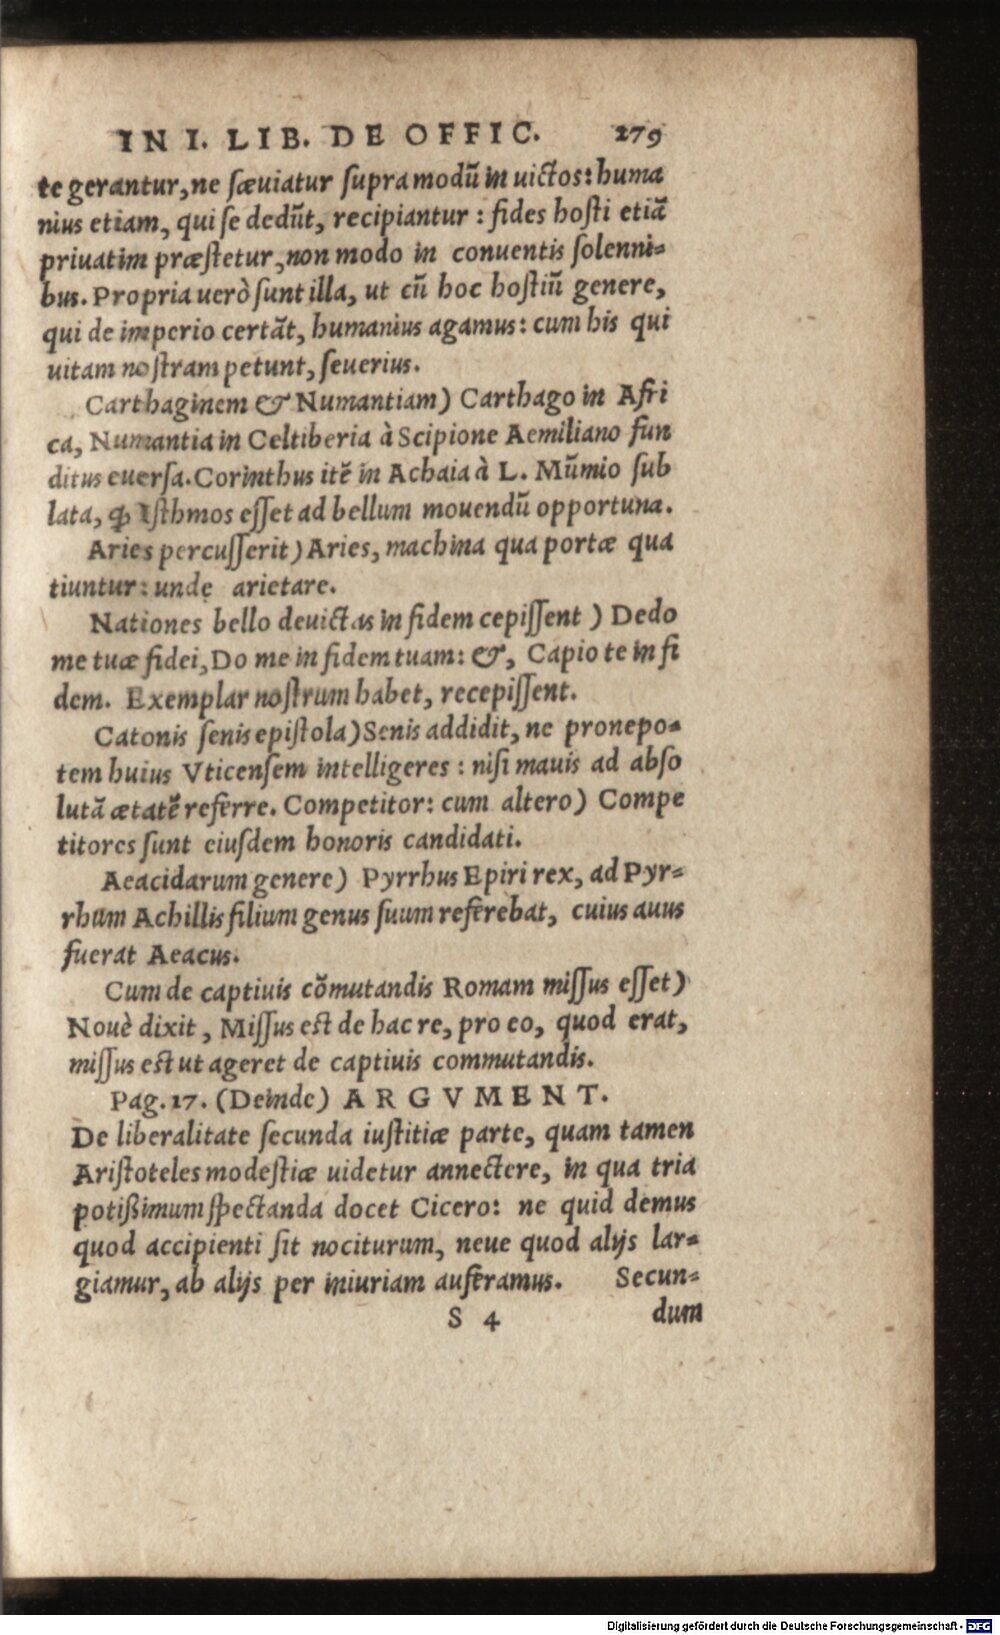 IN I. LIB. DE OFFIC. 279
te gerantur, ne sæuiatur supra modū in uictos: huma
nius etiam, qui se dedūt, recipiantur : fides hosti etiā
priuatim præstetur, non modo in conuentis solenni-
bus. Propria uerò sunt illa, ut cū hoc hostiū genere,
qui de imperio certāt, humanius agamus: cum his qui
uitam nostram petunt, seuerius.
Carthaginem & Numantiam) Carthago in Afri
ca, Numantia in Celtiberia à Scipione Aemiliano fun
ditus euersa. Corinthus itē in Achaia à L. Mūmio sub
lata, ꝙ Isthmos esset ad bellum mouendū opportuna.
Aries percusserit) Aries, machina qua portæ qua
tiuntur: unde arietare.
Nationes bello deuictas in fidem cepissent ) Dedo
me tuæ fidei, Do me in fidem tuam: &, Capio te in fi
dem. Exemplar nostrum habet, recepissent.
Catonis senis epistola) Senis addidit, ne pronepo-
tem huius Vticensem intelligeres : nisi mauis ad abso
lutā ætatē referre. Competitor: cum altero) Compe
titores sunt eiusdem honoris candidati.
Aeacidarum genere) Pyrrhus Epiri rex, ad Pyr-
rhum Achillis filium genus suum referebat, cuius auus
fuerat Aeacus.
Cum de captiuis cōmutandis Romam missus esset)
Nouè dixit, Missus est de hac re, pro eo, quod erat,
missus est ut ageret de captiuis commutandis.
Pag. 17. (Deinde) ARGVMENT.
De liberalitate secunda iustitiæ parte, quam tamen
Aristoteles modestiæ uidetur annectere, in qua tria
potißimum spectanda docet Cicero: ne quid demus
quod accipienti sit nociturum, neue quod alijs lar-
giamur, ab alijs per iniuriam auferamus. Secun-
S 4 dum
Digitalisierung gefördert durch die Deutsche Forschungsgemeinschaft - DFG